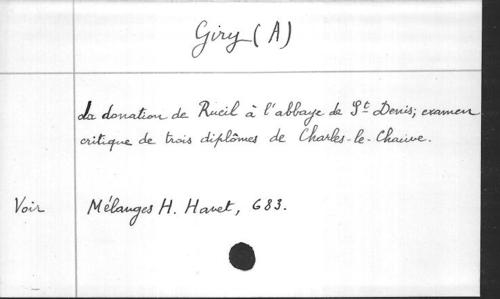 Giry (A)
La donation de Rueil à l'abbaye de St Denis; examen
critique de trois diplômes de Charles-le-Chauve.
Voir Mélanges H. Havet, 683.